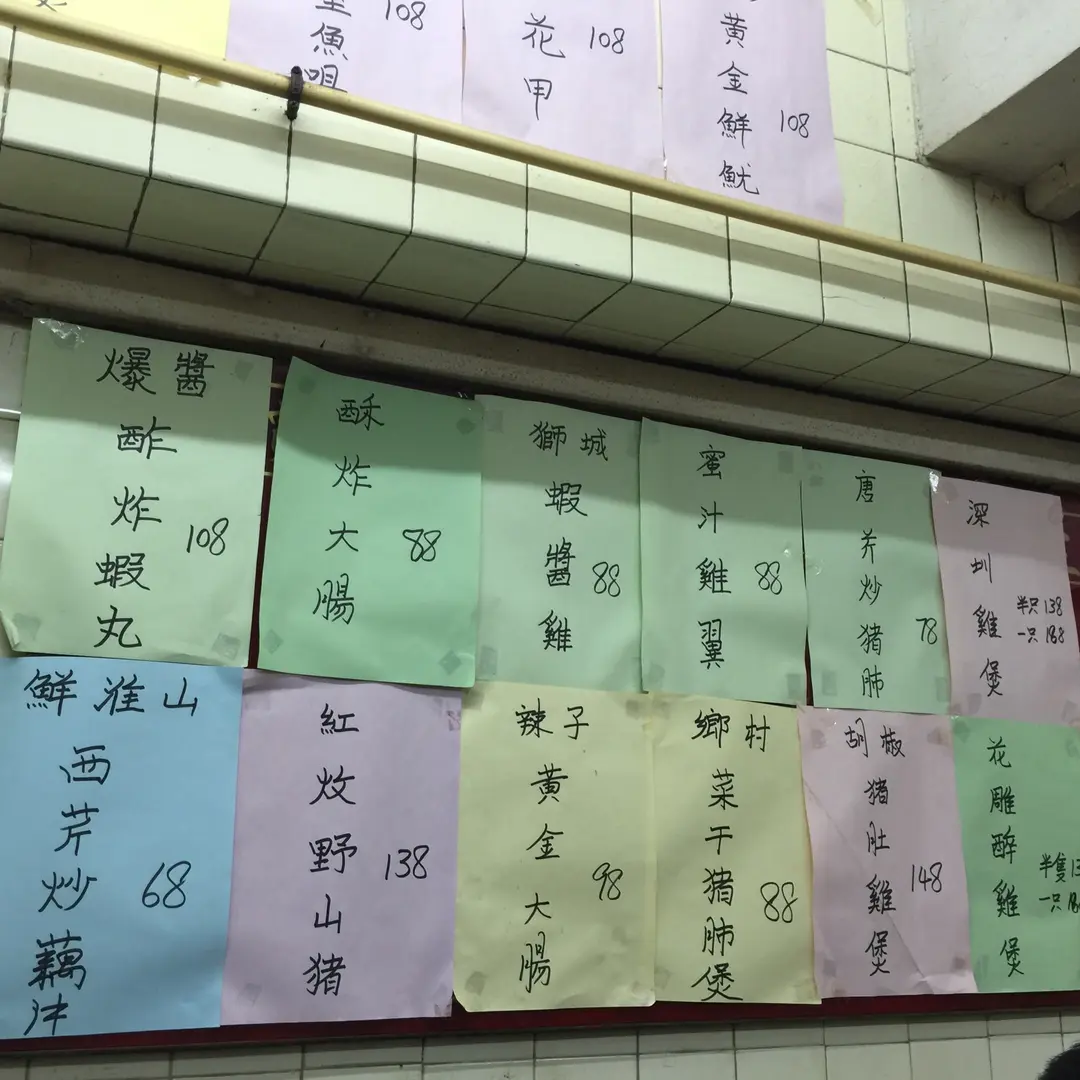 魚咀 108
花甲 108
黃金鮮魷 108
爆醬
酢炸蝦丸 108
酥炸大腸 88
獅城
蝦醬雞 88
蜜汁雞翼 88
唐芥炒猪肺 78
深圳雞煲
半只138
一只188
鮮淮山
西芹炒藕片 68
紅炆野山猪 138
辣子
黃金大腸 98
鄉村
菜干猪肺煲 88
胡椒
猪肚雞煲 148
花雕醉雞煲
半隻
一只